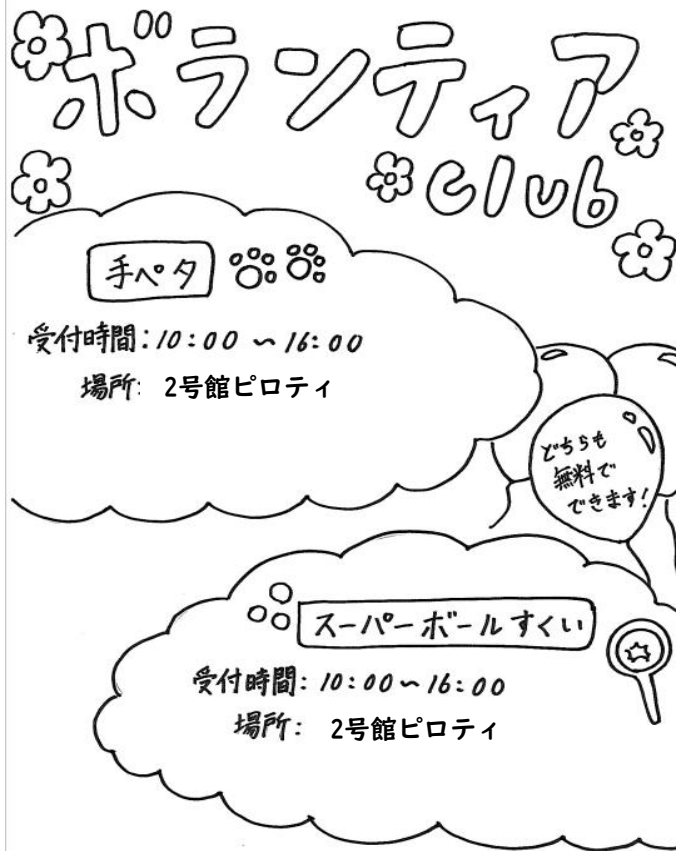 ボランティア
club
手ペタ
受付時間:10:00 ~ 16:00
場所: 2号館ピロティ
どちらも
無料で
できます!
スーパーボールすくい
受付時間:10:00~16:00
場所: 2号館ピロティ